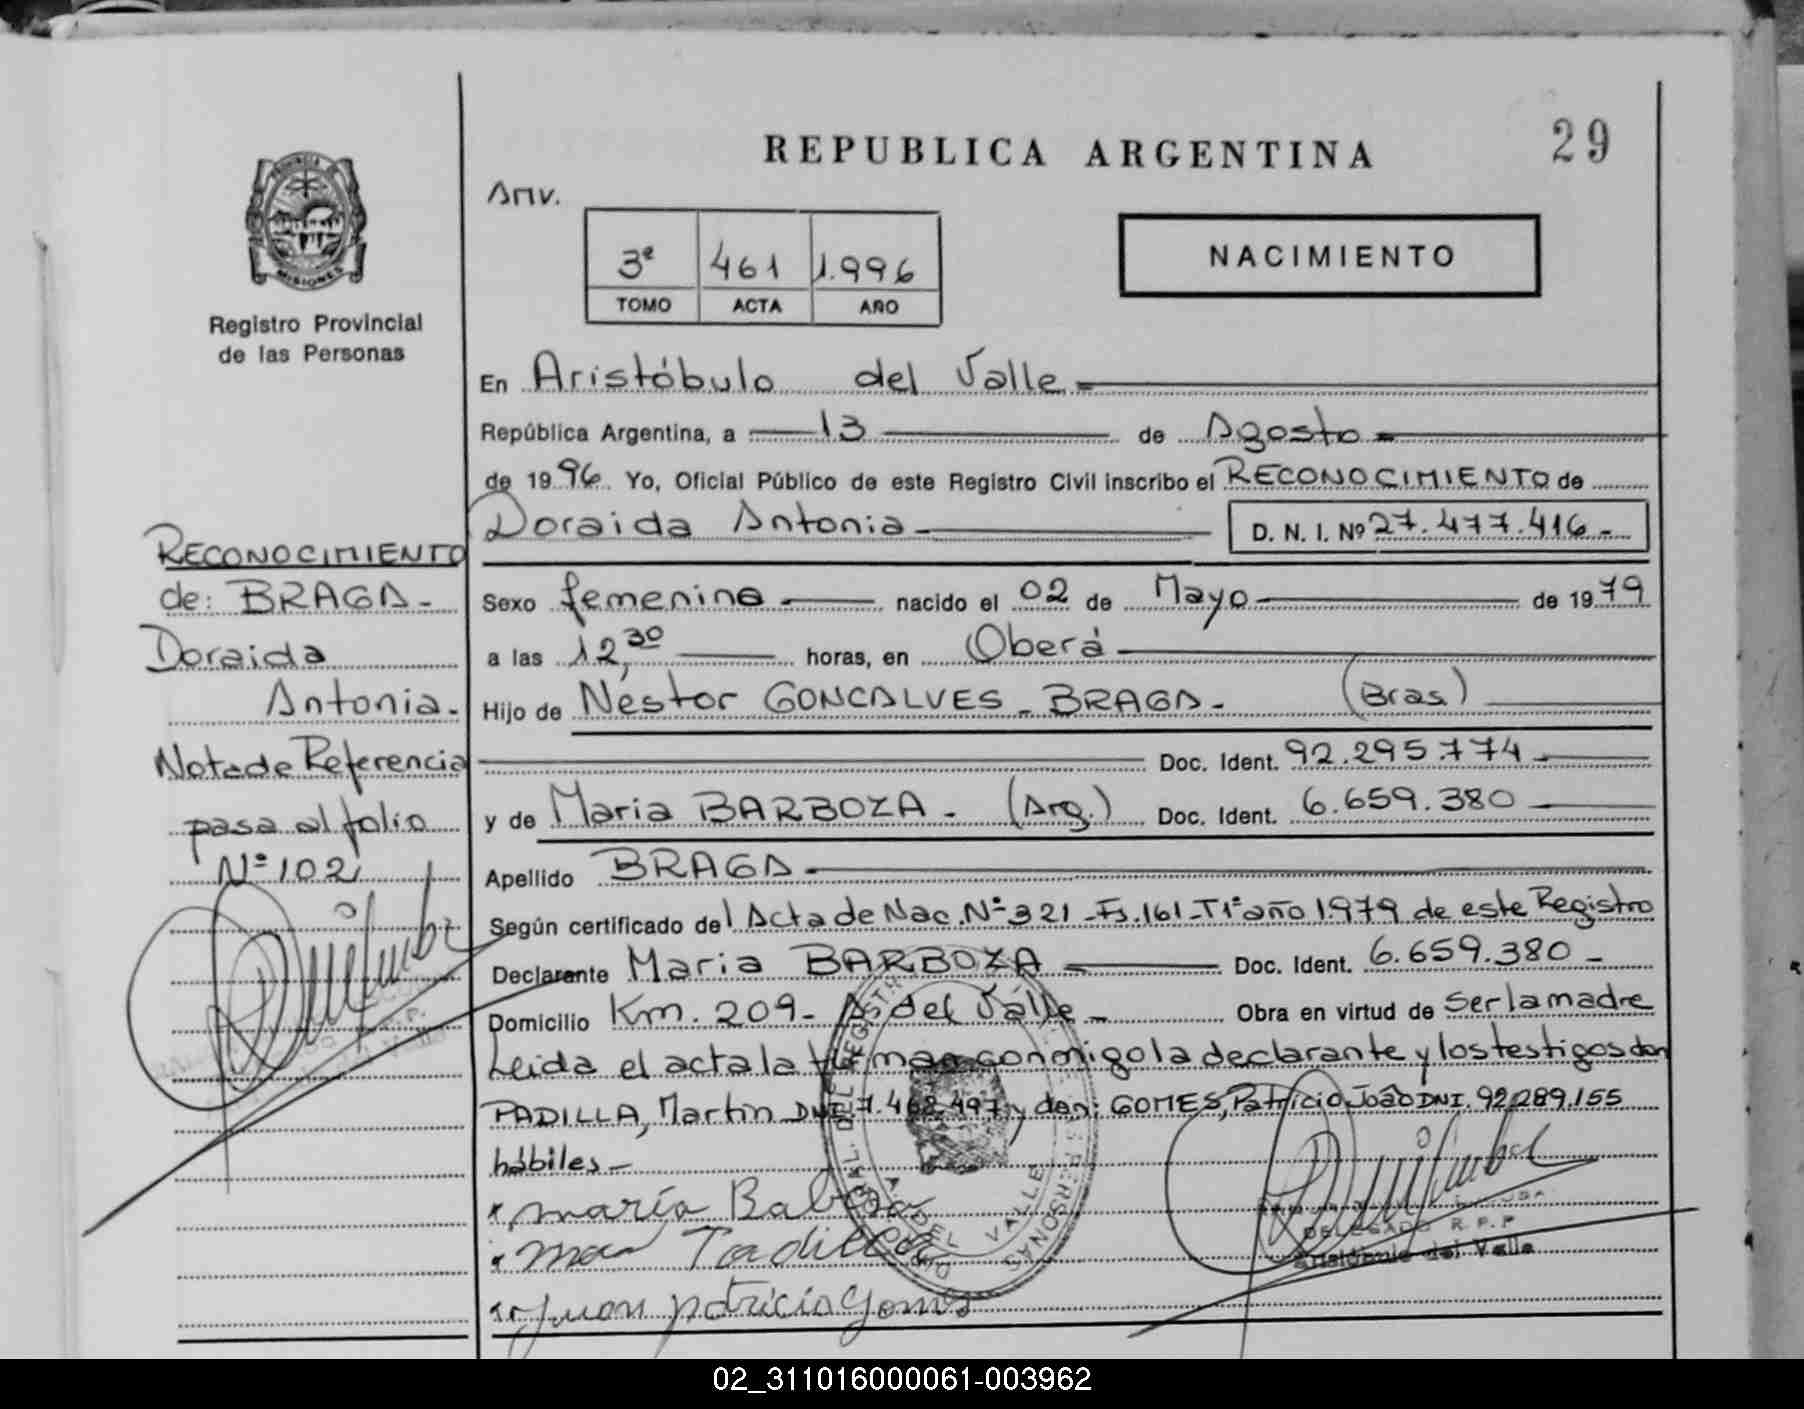 REPUBLICA ARGENTINA
29
Anv.
PROVINCIA
MISIONES
3º 461 1.996
TOMO ACTA AÑO
NACIMIENTO
Registro Provincial
de las Personas
En Aristóbulo del Valle.=
República Argentina, a 13 de Agosto
de 1996. Yo, Oficial Público de este Registro Civil inscribo el RECONOCIMIENTO de
Doraida Antonia D. N. I. Nº 27.477.416.-
Sexo femenino nacido el 02 de Mayo de 1979
a las 12,30 horas, en Oberá
Hijo de Nestor GONCALVES - BRAGA - (Bras)
Doc. Ident. 92.295.774
y de Maria BARBOZA - (Arg.) Doc. Ident. 6.659.380
Apellido BRAGA
Según certificado del Acta de Nac. Nº 321 - Fs. 161 - T1º año 1.979 de este Registro
Declarante Maria BARBOZA Doc. Ident. 6.659.380 -
Domicilio Km. 209 - A. del Valle - Obra en virtud de ser la madre
Leida el acta la firman conmigo la declarante y los testigos don
PADILLA, Martin DNI 7.468.497 y don: GOMES, Patricio João DNI. 92.289.155
hábiles -
maría
Juan patricio Gomes
DELEGADO R.P.P
Aristóbulo del Valle
RECONOCIMIENTO
de: BRAGA -
Doraida
Antonia.
Nota de Referencia
pasa al folio
Nº 102
02_311016000061-003962